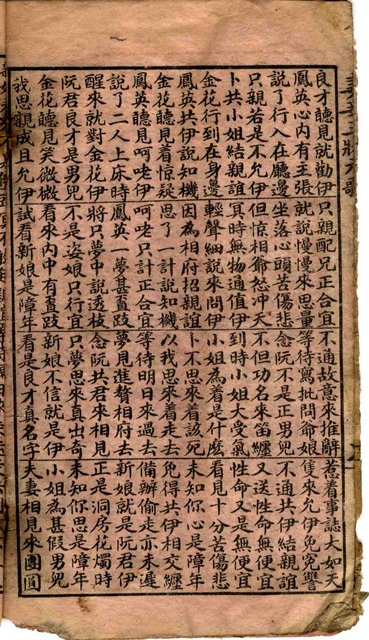 良才聽見就勸伊 只親配兄正合宜 不通故意來推辭 惹着事誌大如天
鳳英心內有主張 就說慢慢來思量 等待罵批問爺娘 隻來允伊免冤讐
說了行入在廳邊 坐落心頭苦傷悲 念阮不是正男兒 不通共伊結親誼
只親若是不允伊 但惊相爺怒冲天 不但功名來笛纏 又送性命無便宜
卜共小姐結親誼 冥時無物通值伊 到時小姐大受氣 性命又是無便宜
金花行到在身邊 輕聲細說來問伊 小姐為着是什麽 看見十分苦傷悲
鳳英共伊說知機 因為相府招親誼 卜不思來着該死 未知你心是障年
金花聽見着驚疑 思了一計說知機 以我思來着走去 免得共伊相交纏
鳳英聽見呵咾伊 呵咾只計正合宜 等待明日來過去 備辦偷走亦未遲
說了二人上床時 鳳英一夢甚蹊蹺 夢見進贅相府去 新娘就是阮君伊
醒來就對金花伊 將只夢中說透枝 念阮共君來相見 正是洞房花燭時
阮君良才是男兒 不是姿娘只行宜 只夢思來真出奇 未知你思是障年
金花聽見笑微微 看來內中有蹊蹺 新娘不信就是伊 小姐為甚假男兒
我思親成且允伊 試看新娘是障年 看是良才真名字 夫妻相見來團圓